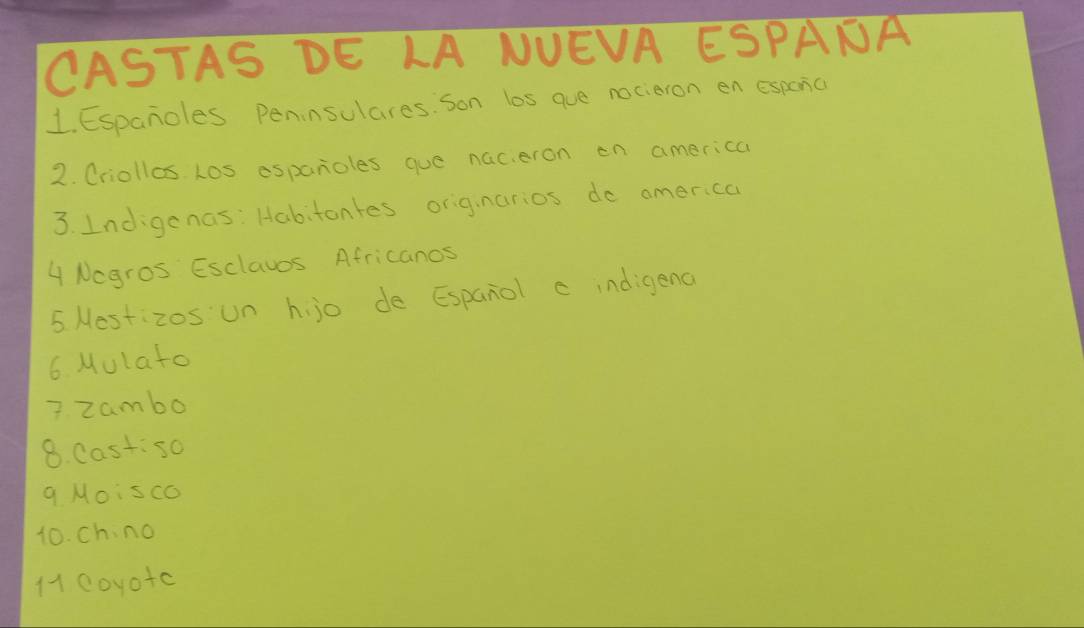 CASTAS DE LA NUEVA ESPAÑA
1. Españoles Peninsulares: Son los que nacieron en España
2. Criollos Los españoles que nacieron en america
3. Indigenas: Habitantes originarios de america
4 Negros Esclavos Africanos
5. Mestizos: Un hijo de Español e indigena
6. Mulato
7. Zambo
8. Castiso
9. Moisco
10. Chino
11 Coyote